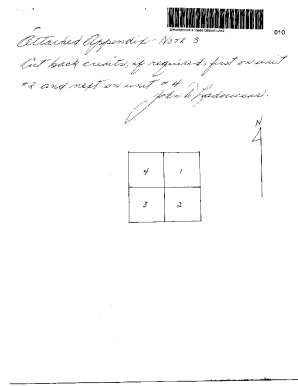 010
Attached Appendix - Note 3
Cut back credits, if required, first on unit
#3 and next on unit #4
John W
N
4 1
3 2